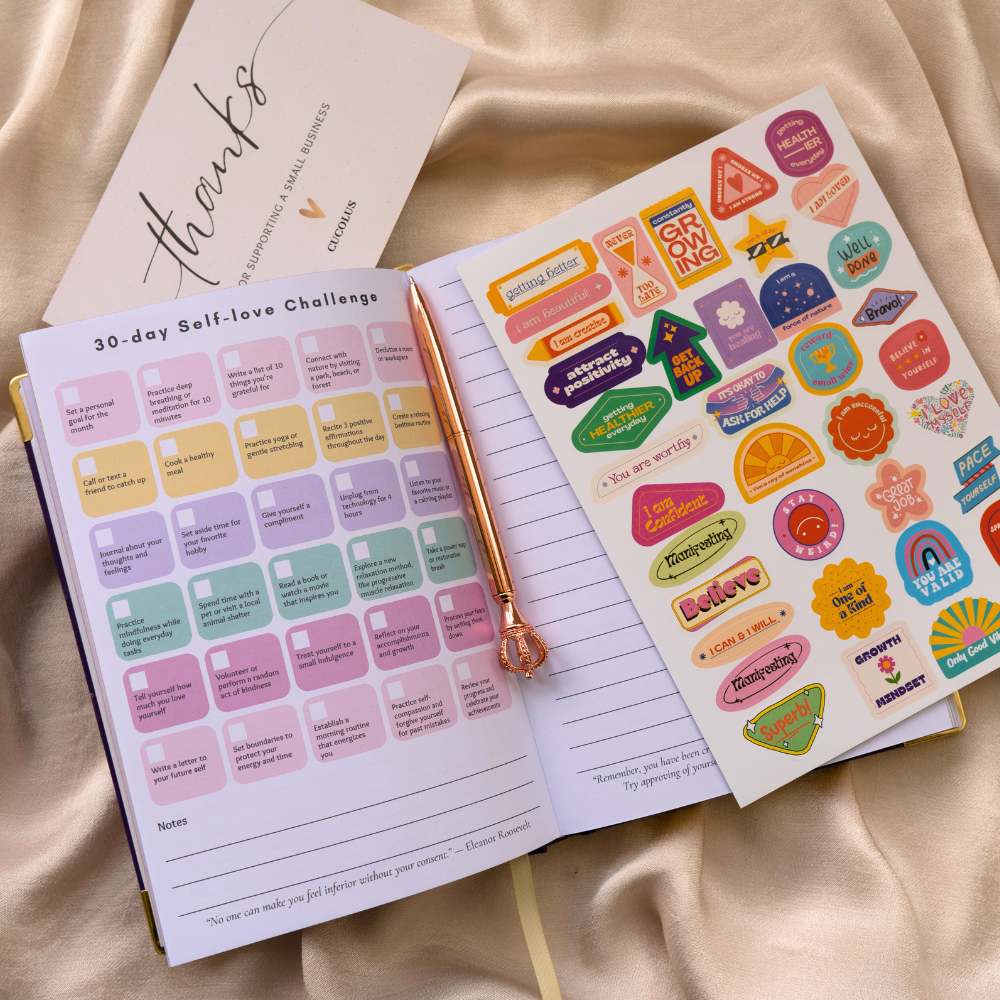 thanks
OR SUPPORTING A SMALL BUSINESS
CUCOLUS
30-day Self-love Challenge
Set a personal
goal for the
month
Practice deep
breathing or
meditation for 10
minutes
Write a list of 10
things you're
grateful for
Connect with
nature by visiting
a park, beach, or
forest
Declutter a room
or workspace
Call or text a
friend to catch up
Cook a healthy
meal
Practice yoga or
gentle stretching
Recite 3 positive
affirmations
throughout the day
Create a relaxing
bedtime routine
Journal about your
thoughts and
feelings
Set aside time for
your favorite
hobby
Give yourself a
compliment
Unplug from
technology for 4
hours
Listen to your
favorite music or
a calming playlist
Practice
mindfulness while
doing everyday
tasks
Spend time with a
pet or visit a local
animal shelter
Read a book or
watch a movie
that inspires you
Explore a new
relaxation method,
like progressive
muscle relaxation
Take a power nap
or restorative
break
Tell yourself how
much you love
yourself
Volunteer or
perform a random
act of kindness
Treat yourself to a
small indulgence
Reflect on your
accomplishments
and growth
Process your fears
by writing them
down
Write a letter to
your future self
Set boundaries to
protect your
energy and time
Establish a
morning routine
that energizes
you
Practice self-
compassion and
forgive yourself
for past mistakes
Review your
progress and
celebrate your
achievements
Notes
"No one can make you feel inferior without your consent." — Eleanor Roosevelt
"Remember, you have been cr
Try approving of yourse
getting
HEALTH
IER
everyday
I AM STRONG
I AM STRONG
I AM STRONG
I AM LOVED
constantly
GR
OW
ING
NEVER
TOO
LATE
getting better
I am beautiful
I am creative
WELL
DONE
I am a
force of nature
Bravo!
you are
healing
attract
positivity
GET
BACK
UP
BELIEVE
IN
YOURSELF
reward
small wins
IT'S OKAY TO
ASK FOR HELP
getting
HEALTHIER
everyday
I LOVE
MYSELF
I am successful
You are worthy
I'm a ray of sunshine
PACE
YOURSELF
GREAT
JOB
I am
Confident
STAY
WEIRD!
Manifesting
YOU ARE
VALID
Believe
I am
One of
a Kind
I CAN & I WILL
Only Good Vi
Manifesting
GROWTH
MINDSET
Superb!